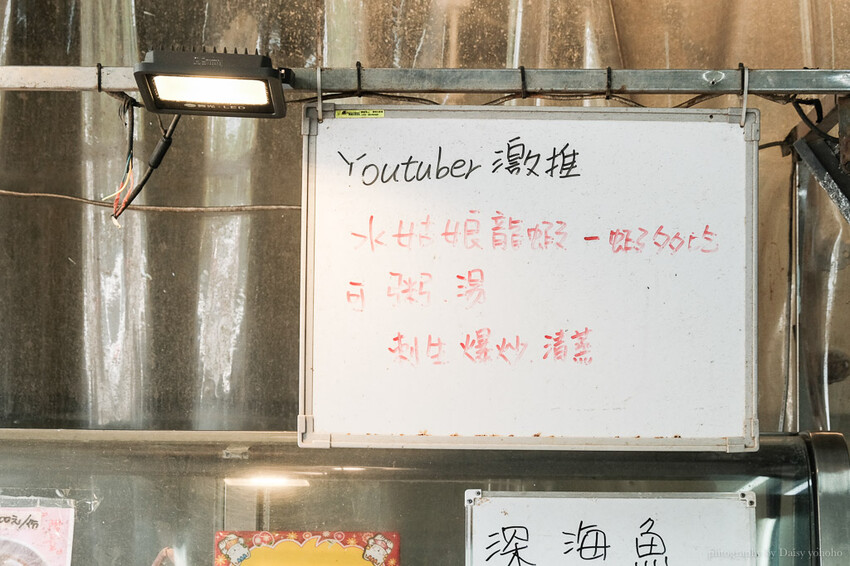 Youtuber 激推
水姑娘龍蝦 一蝦多吃
可粥 湯
刺生 爆炒 清蒸
深海魚
photography by Daisy yohoho